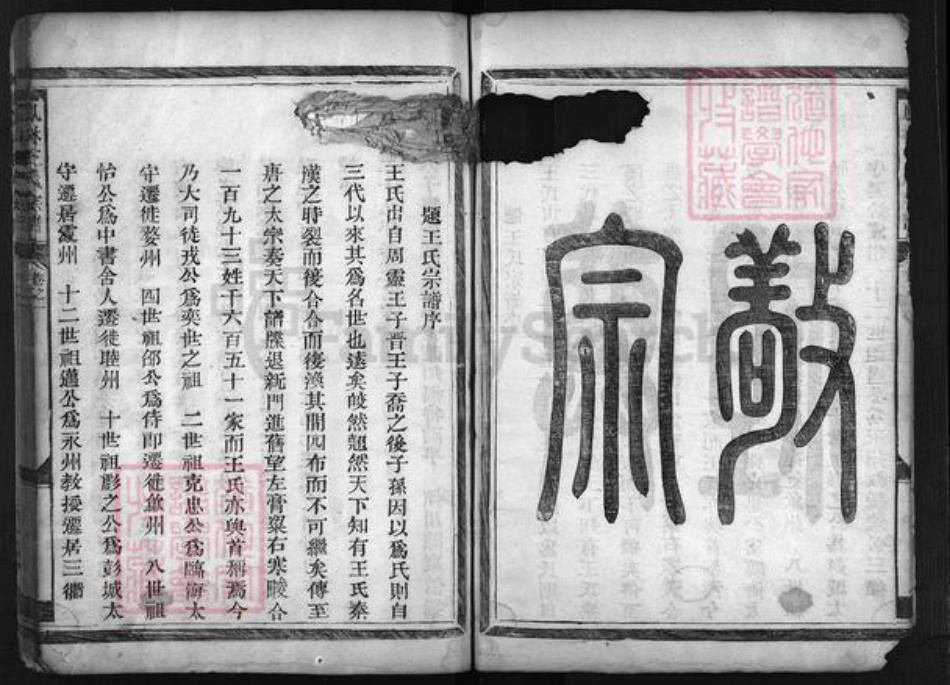 敬宗
題王氏宗譜序
王氏出自周靈王子晉王子喬之後子孫因以爲氏則自
三代以來其爲名世也遠矣皎然翹然天下知有王氏秦
漢之時裂而後合合而後渙其間四布而不可繼矣傳至
唐之太宗奏天下譜牒退新門進舊望左膏粱右寒畯合
一百九十三姓千六百五十一家而王氏亦與首稱焉今
乃大司徒戎公爲奕世之祖 二世祖克忠公爲臨海太
守遷徙婺州 四世祖邵公爲侍郎遷徙歙州 八世祖
怡公爲中書舍人遷徙睦州 十世祖彪之公爲彭城太
守遷居衢州 十二世祖邁公爲永州教授遷居三衢